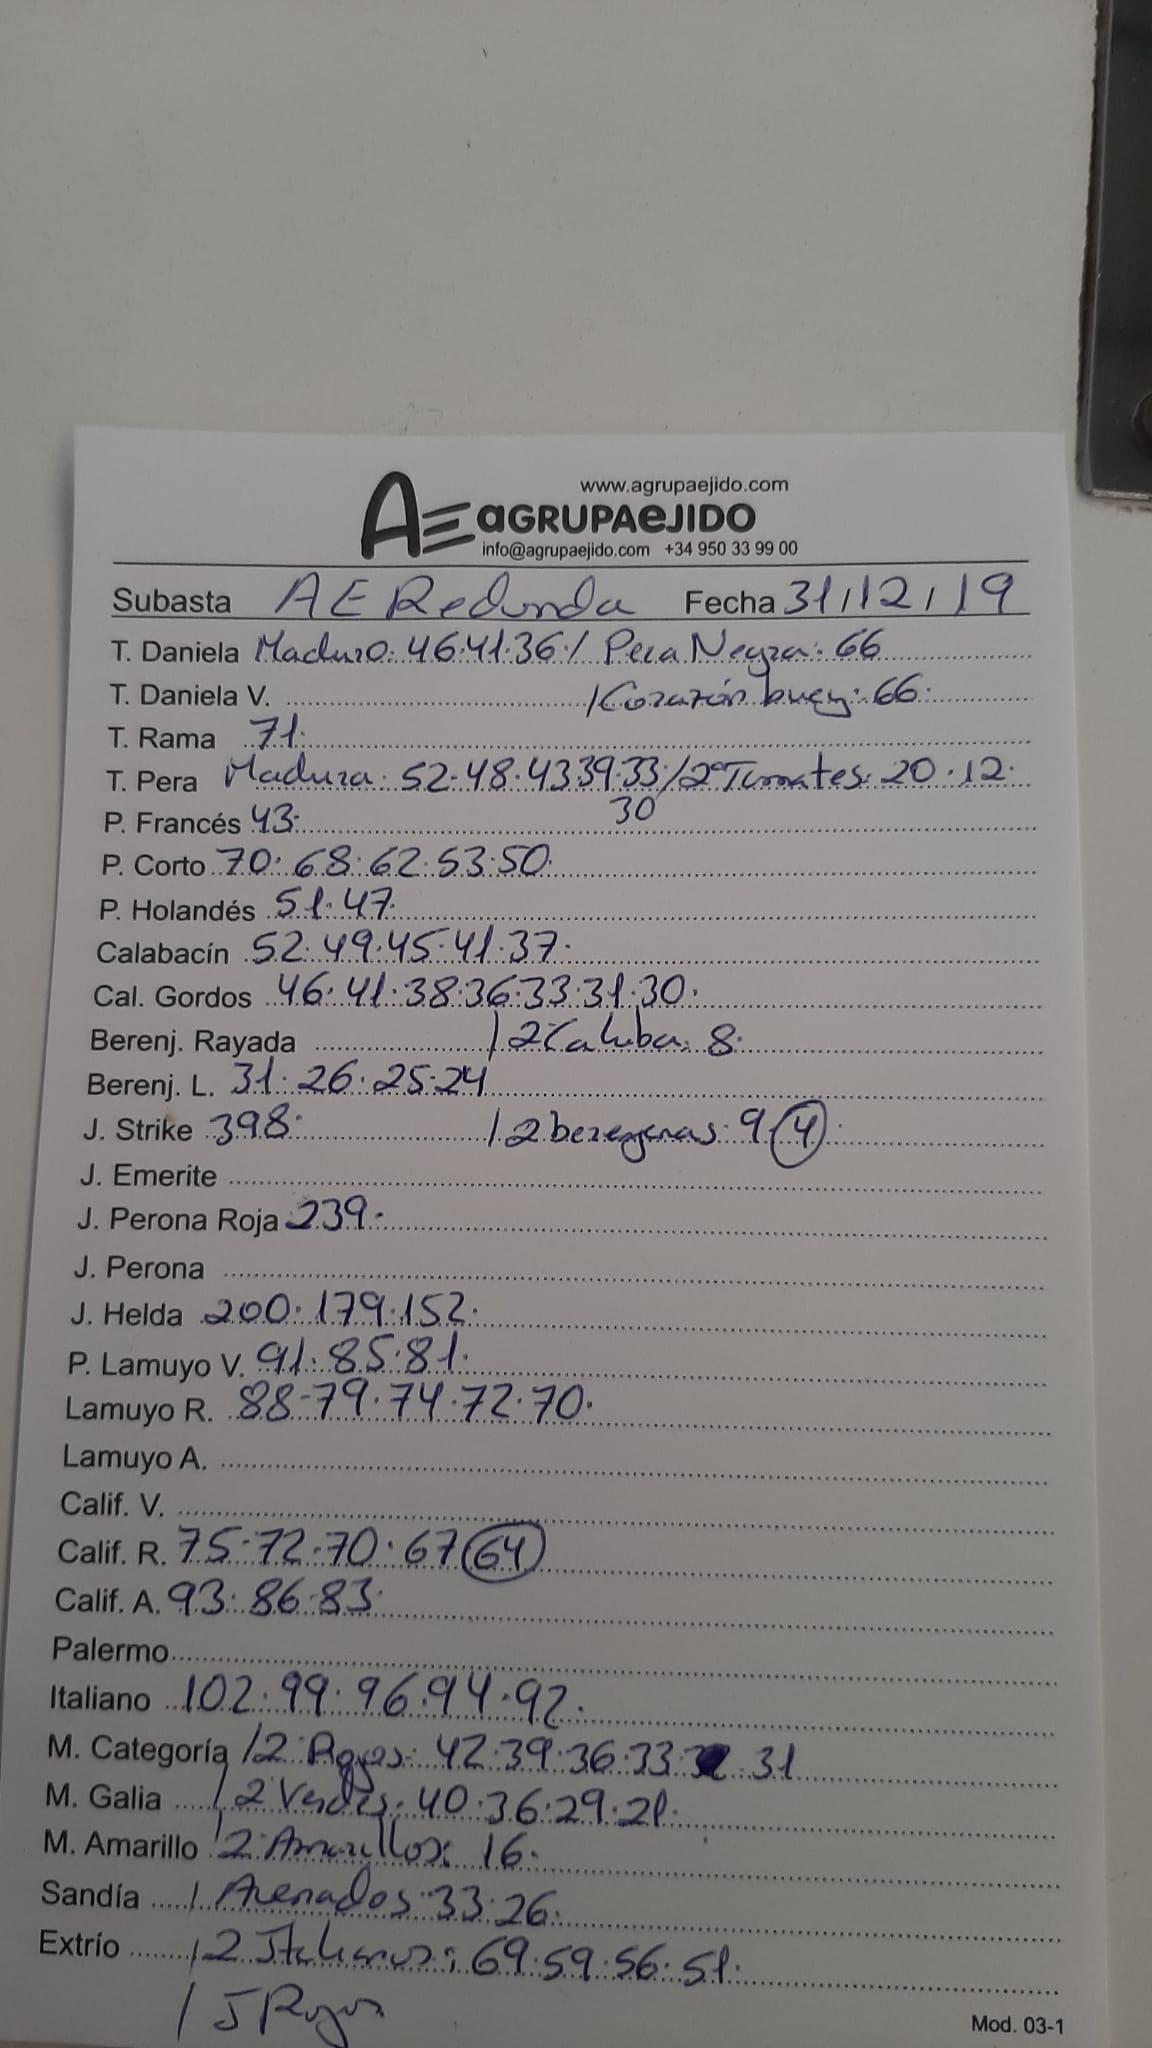 www.agrupaejido.com
AE aGRUPAeJIDO
info@agrupaejido.com +34 950 33 99 00
Subasta AE Redonda Fecha 31/12/19
T. Daniela Maduro: 46·41·36·/ Pera Negra: 66
T. Daniela V. /Corazón buey: 66·
T. Rama 71·
T. Pera Madura· 52·48·43·39·33·/2ª Tomates: 20·12·
30
P. Francés 43·
P. Corto 70·68·62·53·50·
P. Holandés 51·47·
Calabacín 52·49·45·41·37·
Cal. Gordos 46·41·38·36·33·31·30·
Berenj. Rayada /2ª Calaba: 8·
Berenj. L. 31·26·25·24
J. Strike 398· /2 berengenas: 9 (4)·
J. Emerite
J. Perona Roja 239·
J. Perona
J. Helda 200·179·152·
P. Lamuyo V. 91·85·81·
Lamuyo R. 88-79·74·72·70·
Lamuyo A.
Calif. V.
Calif. R. 75·72·70·67 (64)
Calif. A. 93·86·83·
Palermo
Italiano 102·99·96·94·92·
M. Categoría /2ª Rojos: 42·39·36·33· 31
M. Galia /2 Verdes: 40·36·29·21·
M. Amarillo /2ª Amarillos: 16·
Sandía / Asenados 33·26·
Extrío /2 Italianos: 69·59·56·51·
/ J Rojos
Mod. 03-1